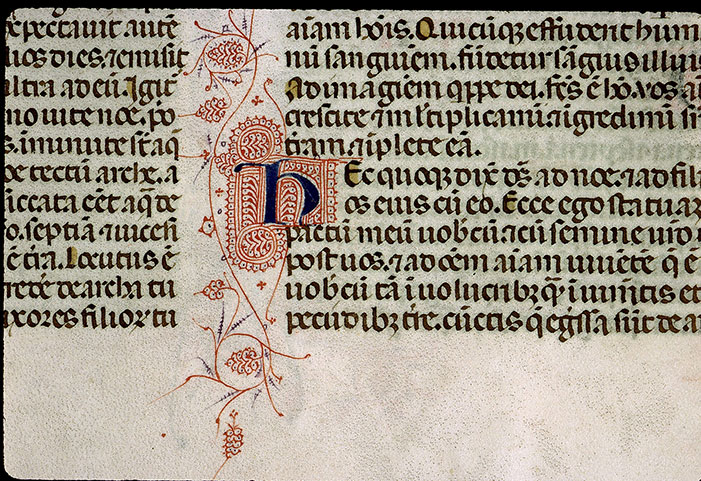 expectauit autē
uos dies. ⁊ emisit
ultra ad eū. Igit̄
mo uite noe. p̄o
s. īminute sūt aq̄
ꝺe tectū arche. a
siccata eēt aq̄ de
o. septīa ⁊ uicesi
ē t̄ra. Locutus ē
tū
uxores filioꝝ tū
aīam hōis. Quicūq; effuderit hum
nū sanguinem. fūdetur sāguis illius
Ad imaginem q̄ppe dei. fc̄s ē hō. uos a
crescite ⁊ ml̄tiplicaminī ⁊ īgredimī
t̄ram. ⁊ īplete eā.
hEc quoq; dix̄ d̄s ad noe. ⁊ ad fil
os eius cū eo. Ecce ego statuā
pactū meū uobcū ⁊ cū semine ur̄o
post uos. ⁊ ad oēm aīam uiuētē q̄ ē
uobcū tā ī uolucribꝫ q̄ ī iumtis et
pecudibꝫ t̄re. cūctis q̄ eḡssa sūt de a